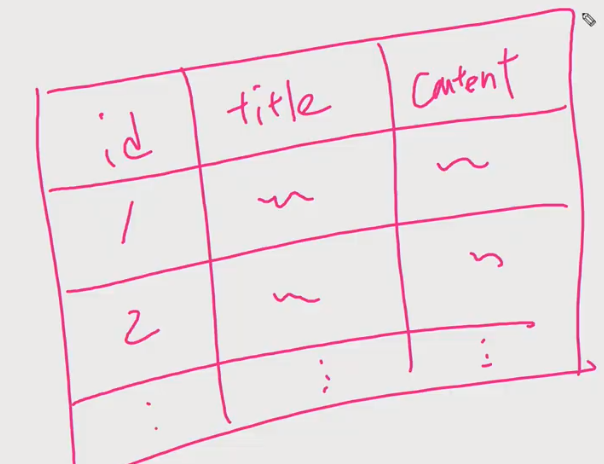 id title content
1
2